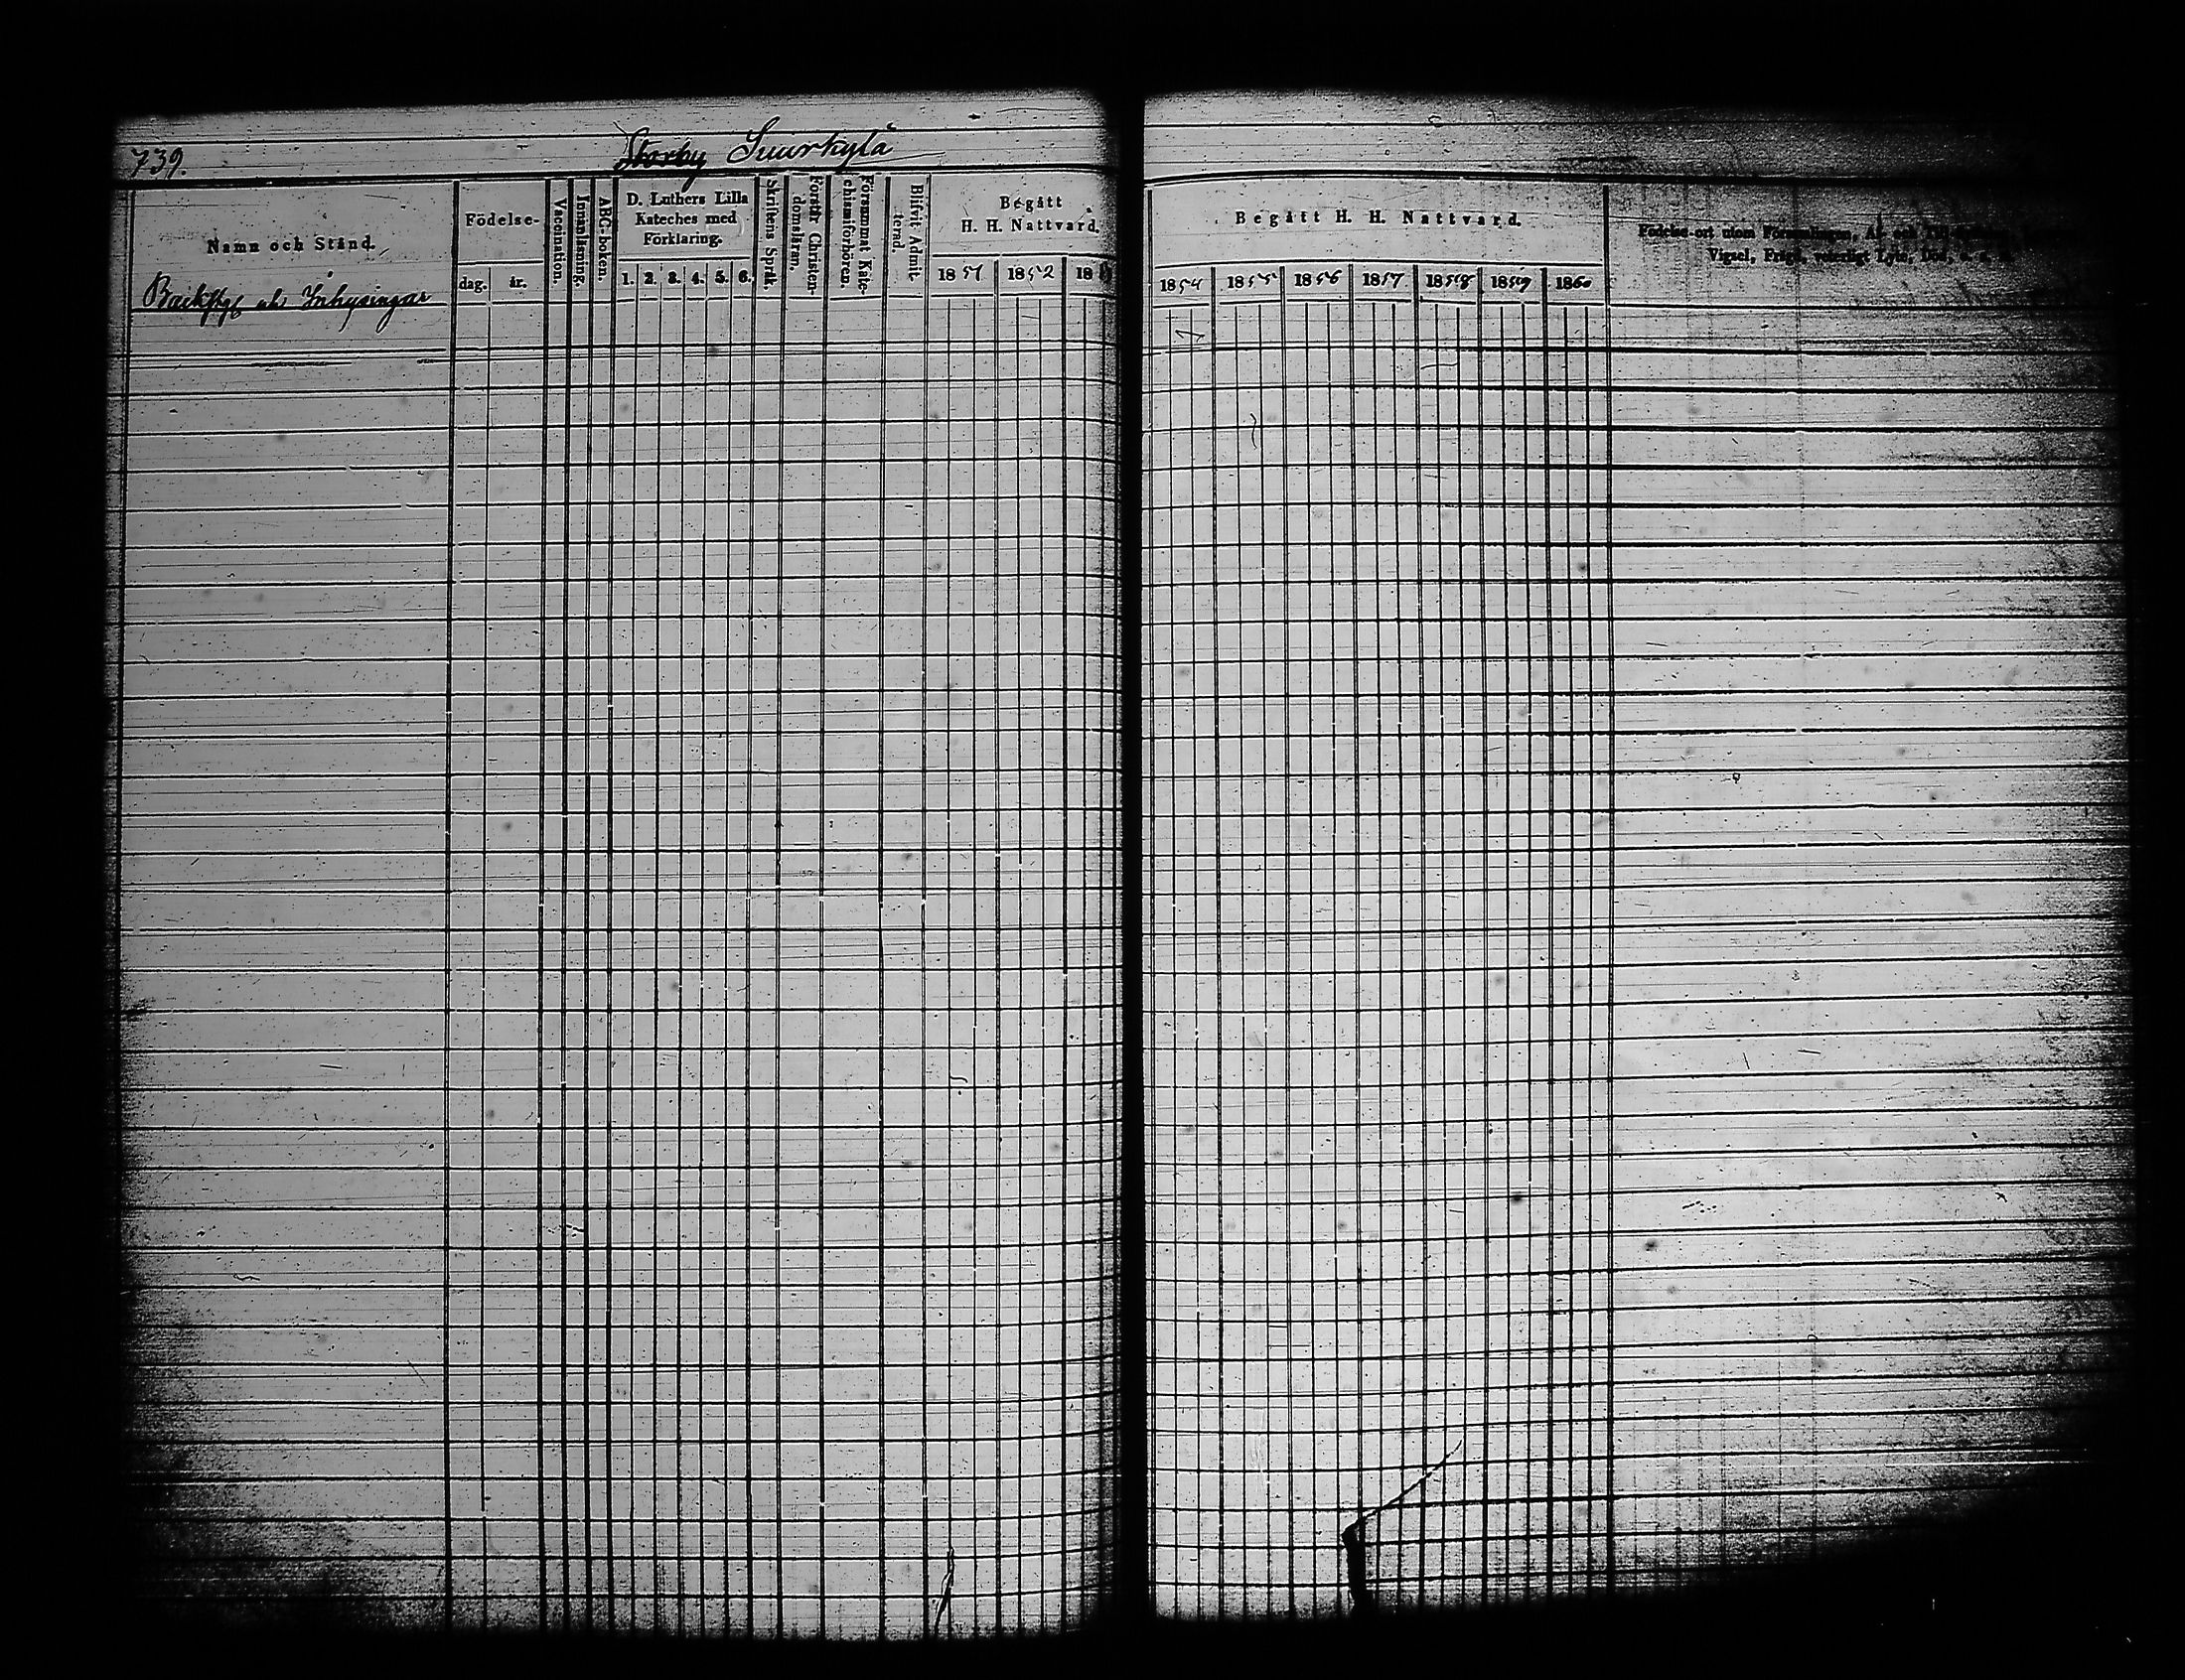 739.
Storby Suurkylä
Namn och Stånd.
Födelse-
dag.
år.
Vaccination.
Innanläsning.
ABC-boken.
D. Luthers Lilla
Kateches med
Förklaring.
1. 2. 3. 4. 5. 6.
Skriftens Språk.
Förstår Christen-
domsläran.
Försummat Kate-
chismiförhören.
Blifvit Admit-
terad.
Begått
H. H. Nattvard.
1851 1852 18
Begått H. H. Nattvard.
1854 1855 1856 1857 1858 1859 1860
Födelse-ort utom Församlingen, Af- och
Vigsel, Frägd, veterligt Lyte, Död,
Inhysingar